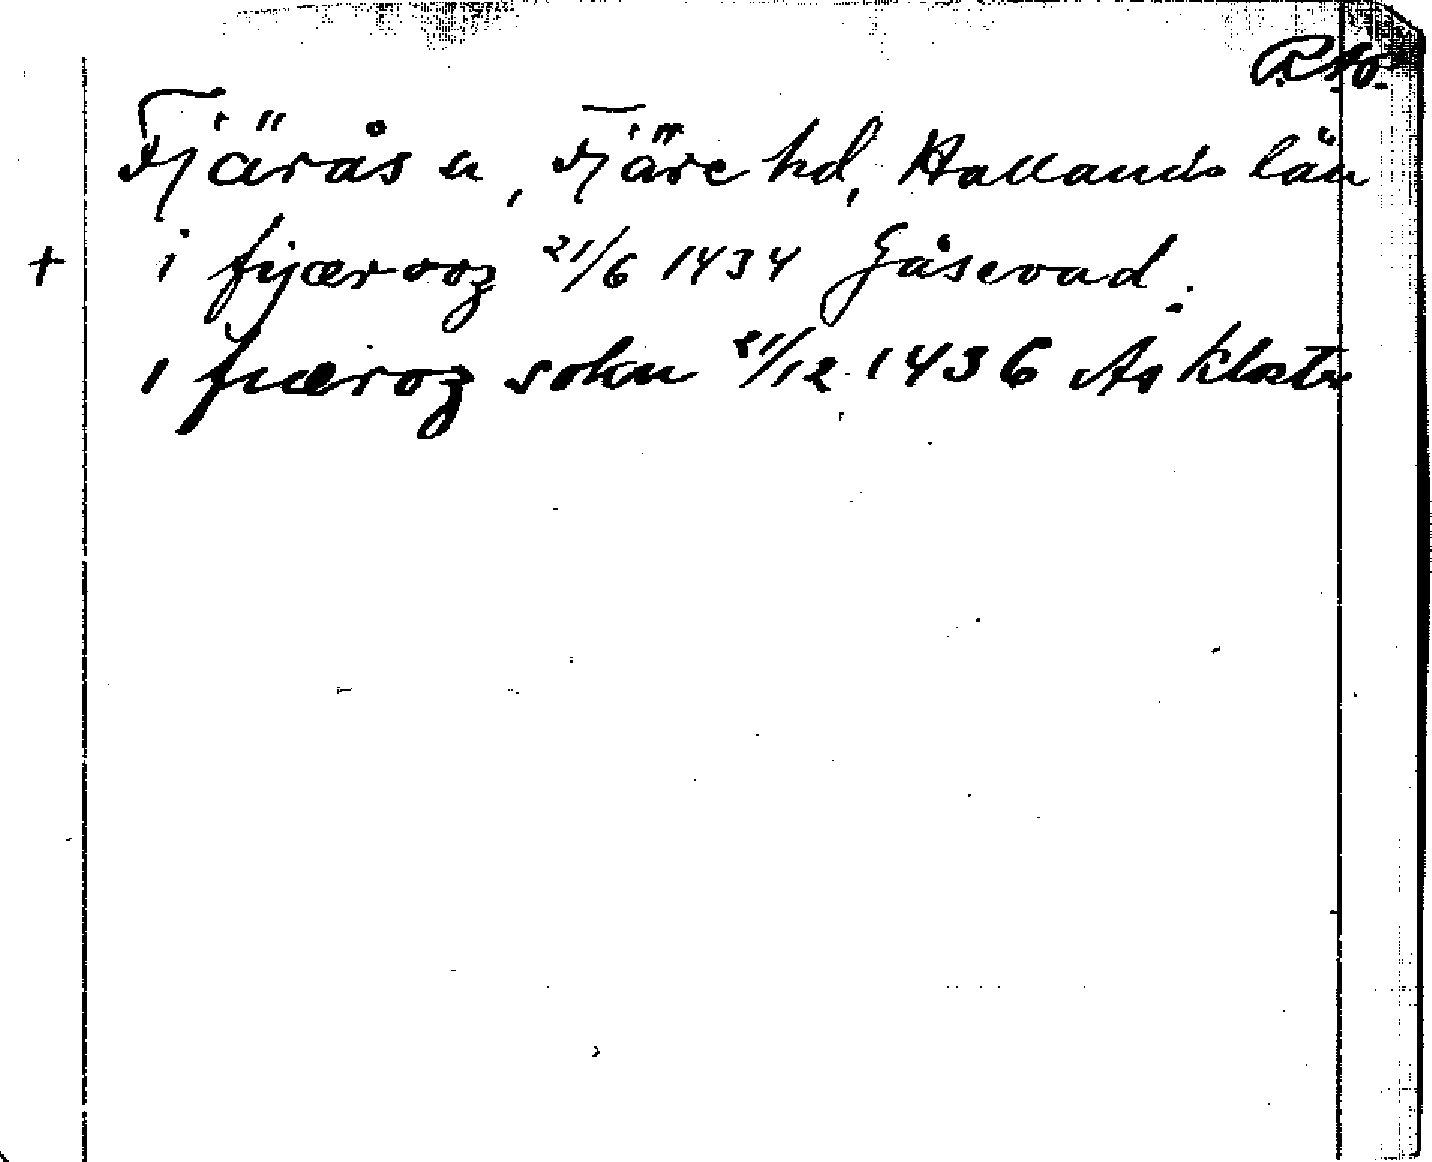 R.Ao.
Fjärås sn, Fjäre hd, Hallands län
+ i fyærooz 21/6 1434 Gåsevad.
i fiæroz sokn 21/12 1436 As Kloster